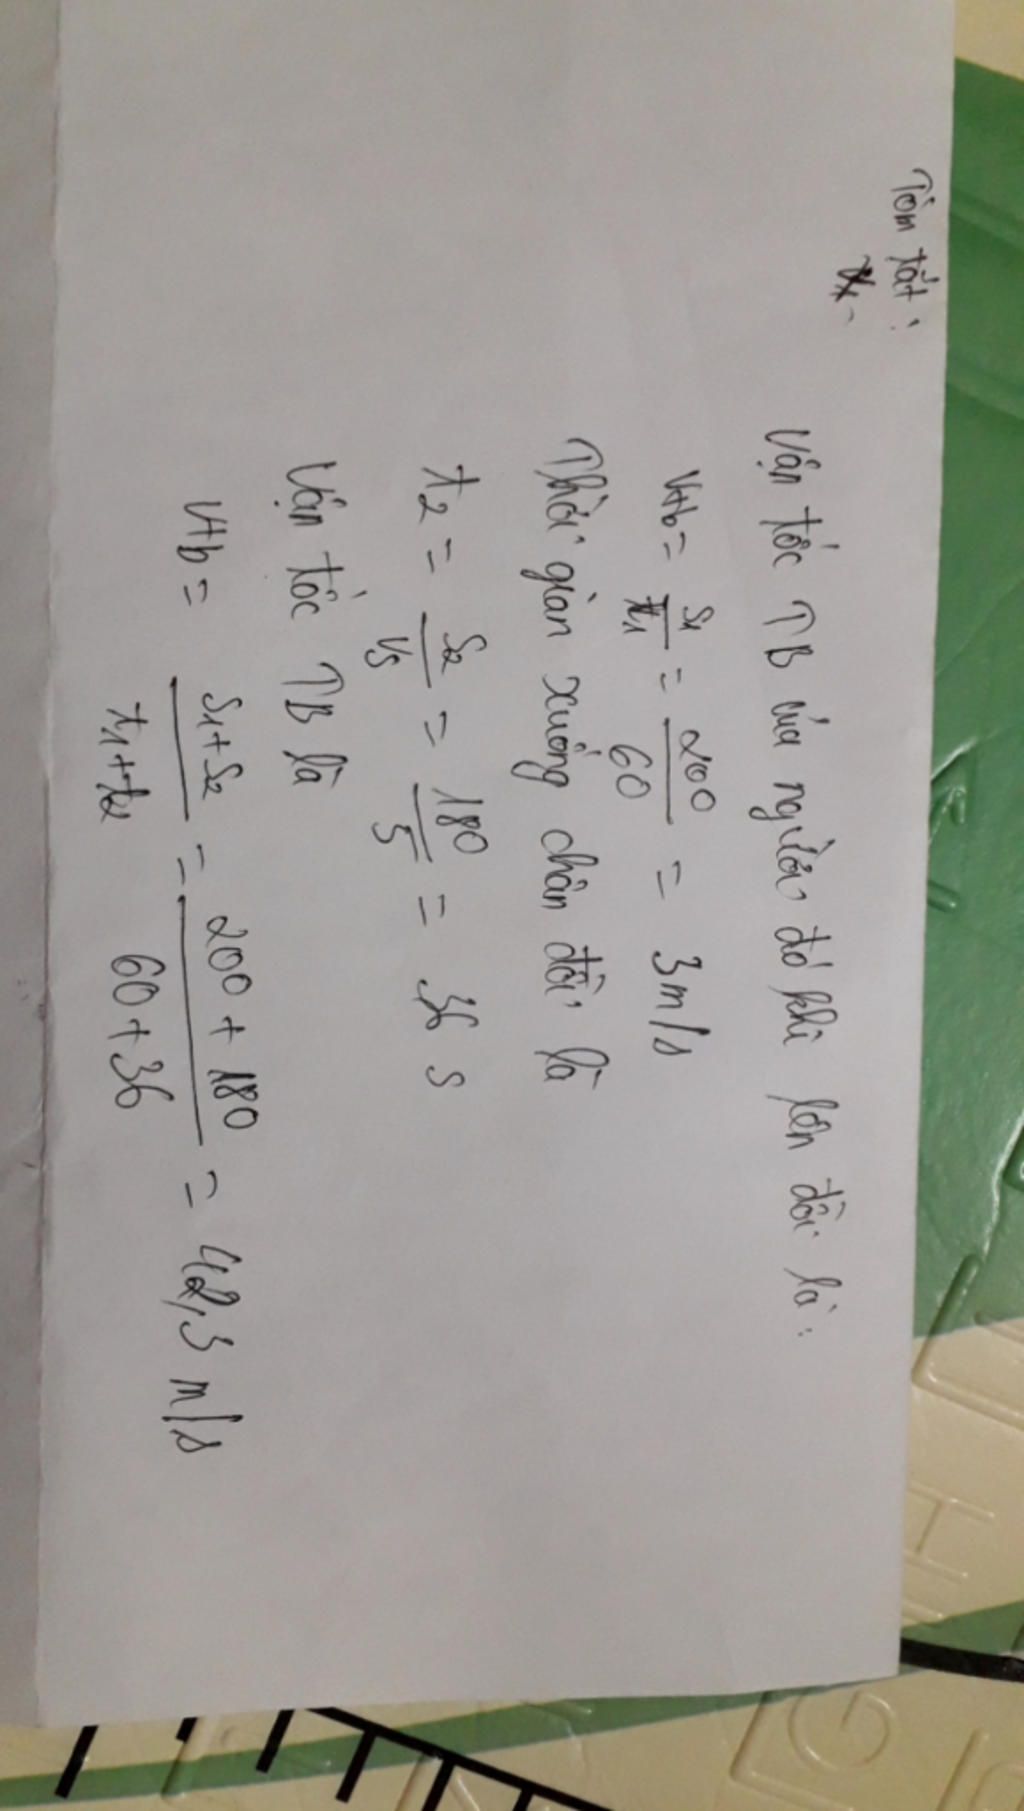 Tóm tắt:
Vận tốc TB của người đó khi lên đồi là:
Vtb = S1/t1 = 200/60 = 3m/s
Thời gian xuống chân đồi là
t2 = S2/V5 = 180/5 = 36 s
Vận tốc TB là
Vtb = S1+S2/t1+t2 = 200+180/60+36 = 42,3 m/s